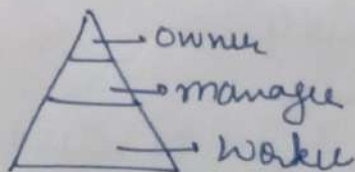 owner
manager
worker